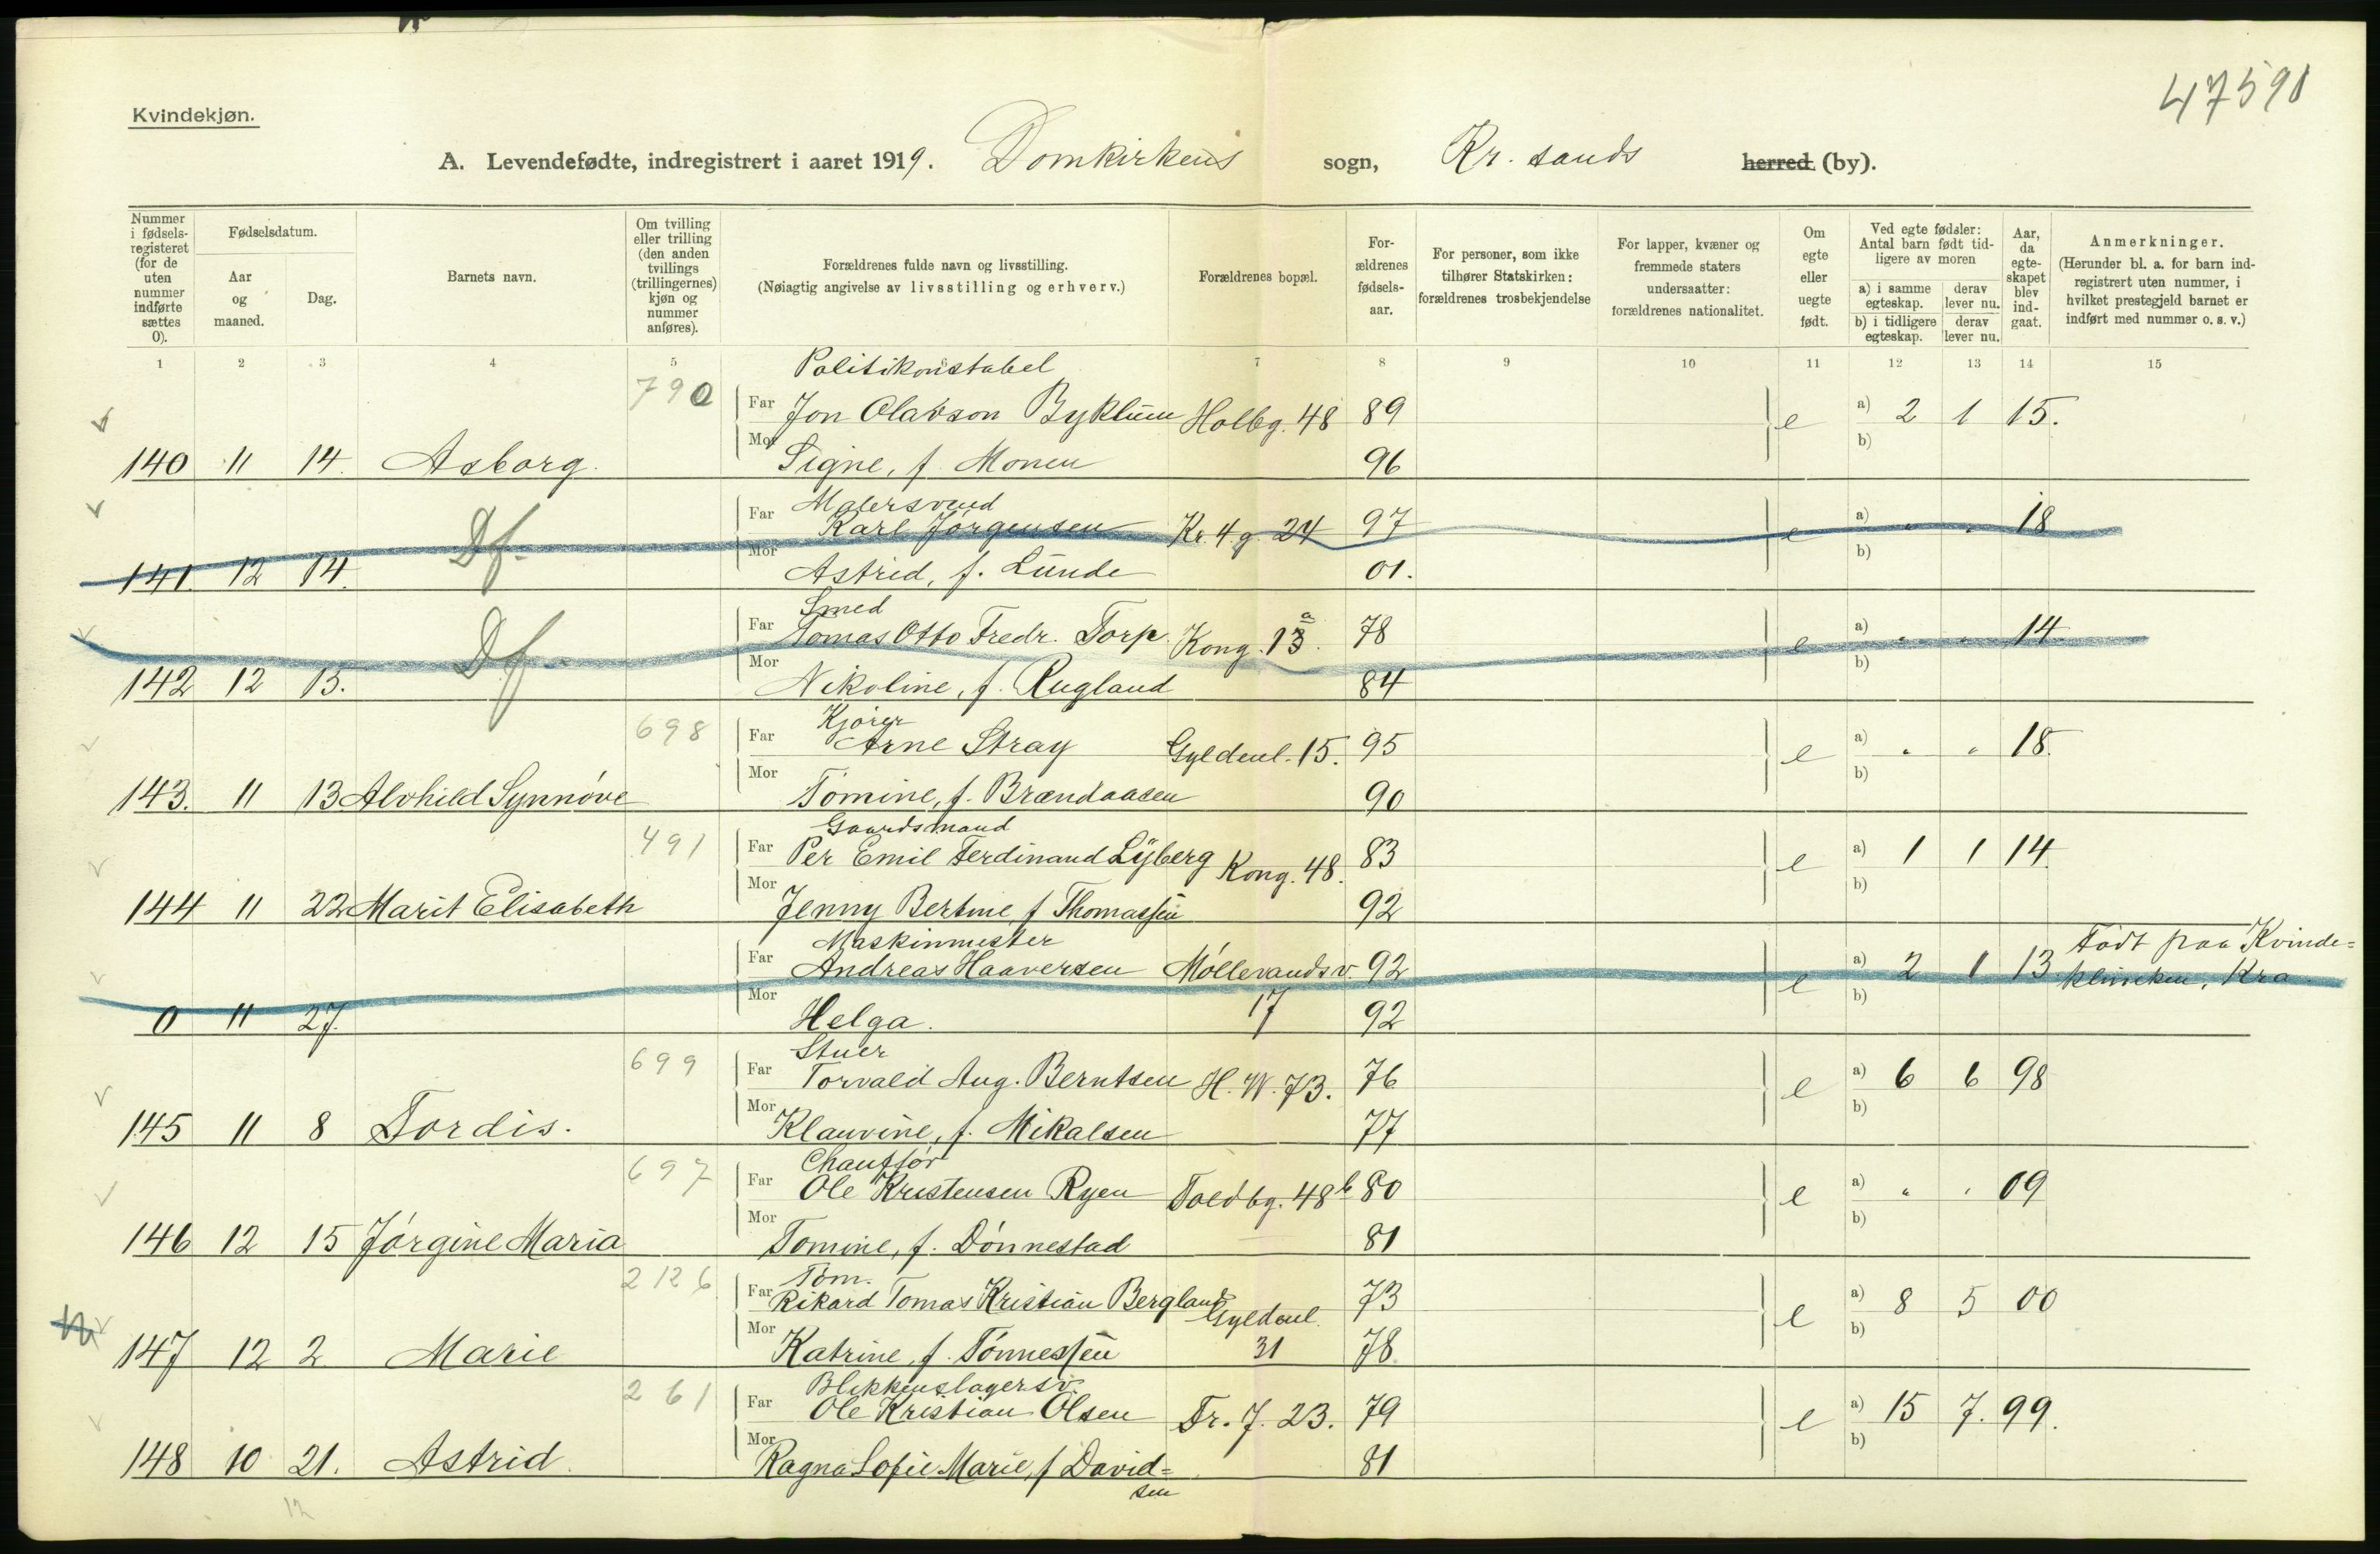 47591
Kvindekjøn.
A. Levendefødte, indregistrert i aaret 1919. Domkirkens sogn, Kr.sands herred (by).
Nummer i fødsels-registeret (for de uten nummer indførte sættes 0).
Fødselsdatum.
Aar og maaned.
Dag.
Barnets navn.
Om tvilling eller trilling (den anden tvillings (trillingernes) kjøn og nummer anføres).
Forældrenes fulde navn og livsstilling.
(Nøiagtig angivelse av livsstilling og erhverv.)
Forældrenes bopæl.
For-ældrenes fødsels-aar.
For personer, som ikke tilhører Statskirken: forældrenes trosbekjendelse
For lapper, kvæner og fremmede staters undersaatter: forældrenes nationalitet.
Om egte eller uegte født.
Ved egte fødsler: Antal barn født tid-ligere av moren
a) i samme egteskap.
derav lever nu.
b) i tidligere egteskap.
derav lever nu.
Aar, da egte-skapet blev ind-gaat.
Anmerkninger.
(Herunder bl. a. for barn ind-registrert uten nummer, i hvilket prestegjeld barnet er indført med nummer o. s. v.)
1 2 3 4 5 7 8 9 10 11 12 13 14 15
Politikonstabel
790 Far Jon Olavson Byklum Holbg. 48 89 e a) 2 1 15.
b)
140 11 14. Asborg. Mor Signe, f. Monen 96
Malersvend
Df. Far Karl Jørgensen Kr. 4 g. 24 97 e a) " " 18
b)
141. 12 14. Mor Astrid, f. Lunde 01.
Smed
Df. Far Tomas Otto Fredr. Torp. Kong. 13 a. 78 e a) " " 14
b)
142 12 15. Mor Nikoline, f. Rugland 84
Kjører
698 Far Arne Stray Gyldenl. 15. 95 e a) " " 18.
b)
143. 11 13 Alvhild Synnøve Mor Tomine, f. Brændaasen 90
Gaardsmand
491 Far Per Emil Ferdinand Lyberg Kong. 48. 83 e a) 1 1 14
b)
144 11 22 Marit Elisabeth Mor Jenny Bertine f Thomassen 92
Maskinmester
Far Andreas Haaversen Møllevandsv. 92 e a) 2 1 13 Født paa Kvinde=
b) klinikken, Kra.
0 11 27. Mor Helga. 17 92
Stuer
699 Far Torvald Aug. Berntsen H. W. 73. 76 e a) 6 6 98
b)
145 11 8 Tordis. Mor Klauvine, f. Mikalsen 77
Chauffør
697 Far Ole Kristensen Ryen Toldbg. 48 b 80 e a) " " 09
b)
146 12 15 Jørgine Maria Mor Tomine, f. Dønnestad 81
Tøm.
2126 Far Rikard Tomas Kristian Bergland Gyldenl. 73 e a) 8 5 00
b)
147 12 2 Marie Mor Katrine, f. Tønnessen 31 78
Blikkenslagersv.
261 Far Ole Kristian Olsen Tr. 7. 23. 79 e a) 15 7. 99.
b)
148 10 21. Astrid. Mor Ragna Sofie Marie, f David=
sen 81
12